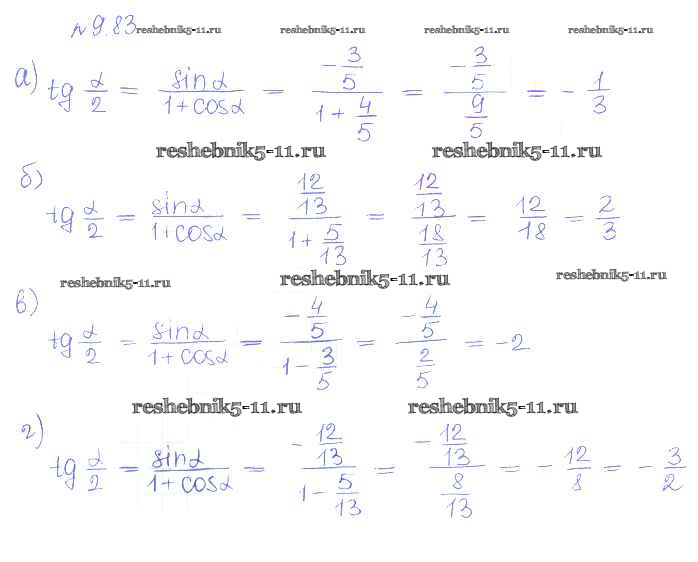 №9.83 reshebnik5-11.ru reshebnik5-11.ru reshebnik5-11.ru reshebnik5-11.ru
а) tg α/2 = sinα/(1+cosα) = (-3/5)/(1+4/5) = (-3/5)/(9/5) = -1/3
reshebnik5-11.ru reshebnik5-11.ru
б)
tg α/2 = sinα/(1+cosα) = (12/13)/(1+5/13) = (12/13)/(18/13) = 12/18 = 2/3
reshebnik5-11.ru reshebnik5-11.ru reshebnik5-11.ru
в)
tg α/2 = sinα/(1+cosα) = (-4/5)/(1-3/5) = (-4/5)/(2/5) = -2
reshebnik5-11.ru reshebnik5-11.ru
г)
tg α/2 = sinα/(1+cosα) = (-12/13)/(1-5/13) = (-12/13)/(8/13) = -12/8 = -3/2